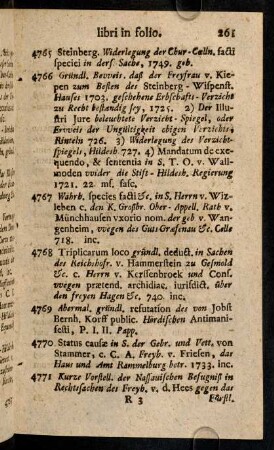 libri in folio. 265
4765 Steinberg. Widerlegung der Chur-Cœlln. facti
speciei in ders. Sache, 1749. geb.
4766 Gründl. Beweis, daß der Freyfrau v. Kie-
pen zum Besten des Steinberg-Wispenst.
Hauses 1703. geschehene Erbschafts-Verzicht
zu Recht beständig sey, 1725. 2) Der Illu-
stri Jure beleuchtete Verzicht-Spiegel, oder
Erweis der Ungültigkeit obigen Verzichts,
Rinteln 726. 3) Widerlegung des Verzicht-
spiegels, Hildesh. 727. 4) Mandatum de exe-
quendo, & sententia in S. T. O. v. Wall-
moden wider die Stift-Hildesh. Regierung
1721. 22. ms. fasc.
4767 Wahrh. species facti &c. in S. Herrn v. Wiz-
leben c. den K. Grosbr. Ober-Appell. Rath v.
Münchhausen vxorio nom. der geb v. Wan-
genheim, wegen des Guts Grasenau &c. Celle
718. inc.
4768 Triplicarum loco gründl. deduct. in Sachen
des Reichshofr. v. Hammerstein zu Gesmold
&c. c. Herrn v. Kerssenbroek und Cons.
wegen prætend. archidiac. jurisdict. über
den freyen Hagen &c. 740. inc.
4769 Abermal. gründl. refutation des von Jobst
Bernh. Korff public. Hördischen Antimani-
festi, P. I. II. Papp.
4770 Status causæ in S. der Gebr. und Vett. von
Stammer, c. C. A. Freyh. v. Friesen, das
Haus und Amt Rammelburg betr. 1733. inc.
4771 Kurze Vorstell. der Nassauischen Befugniß in
Rechtssachen des Freyh. v. d. Hees gegen das
R 3 Fürstl.